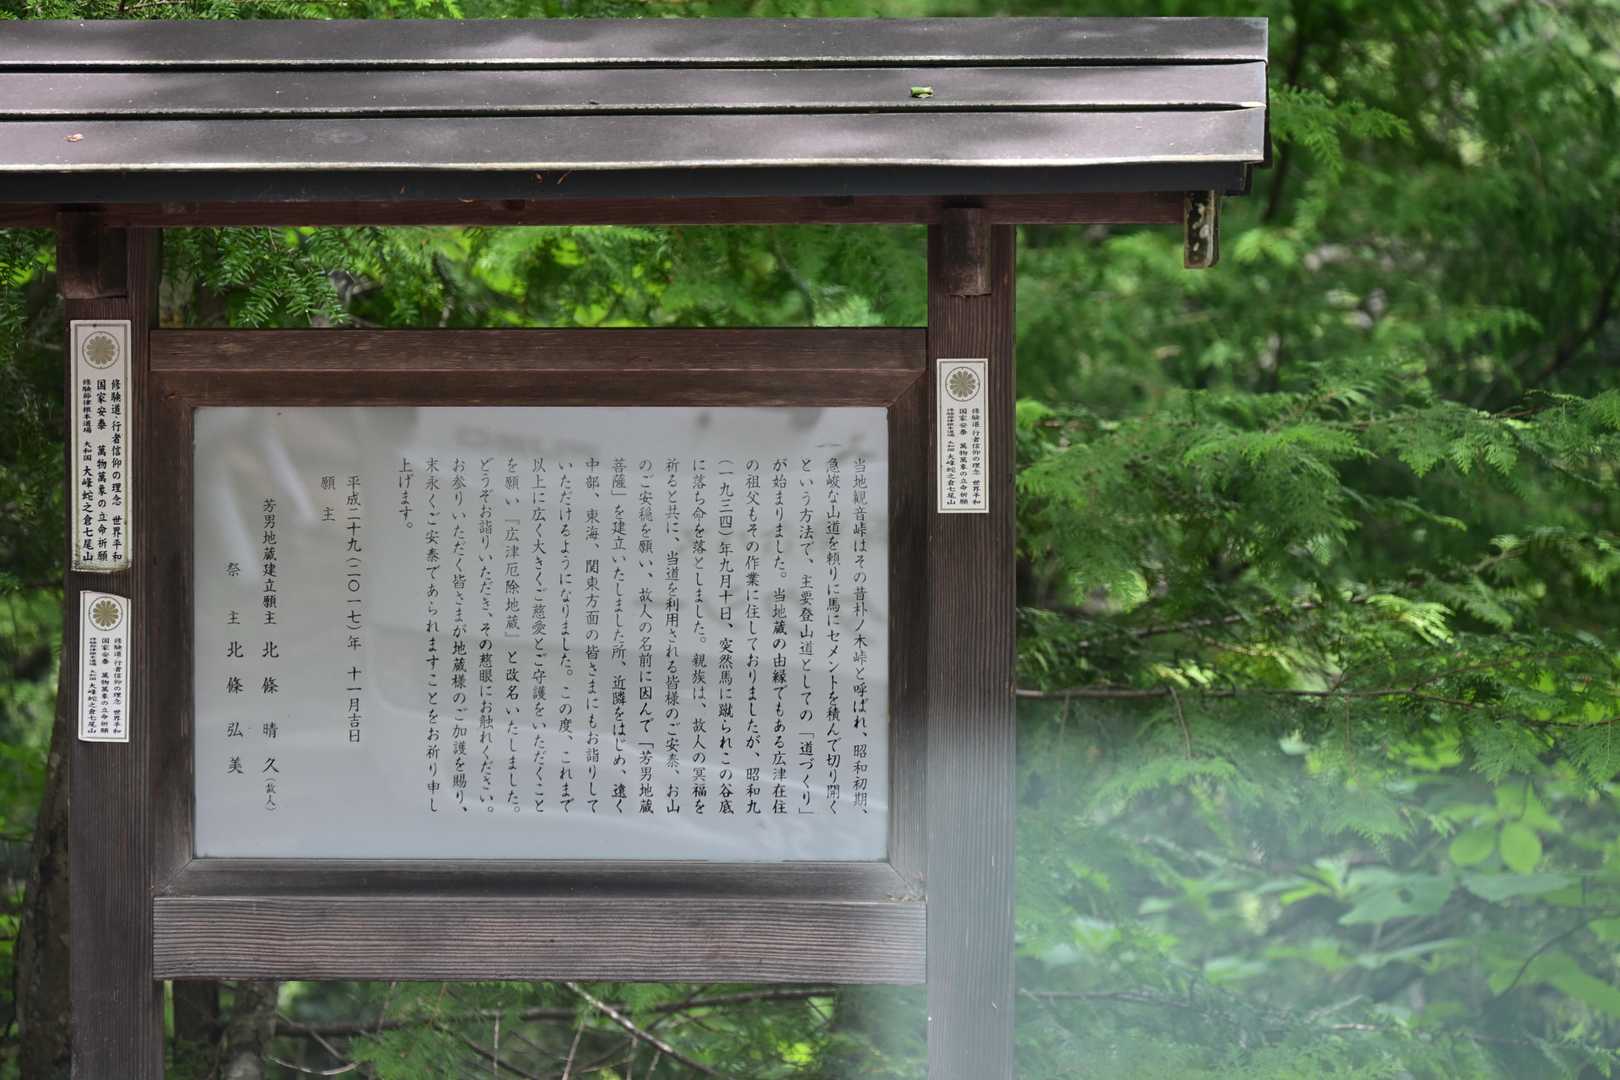 当地観音峠はその昔朴ノ木峠と呼ばれ、昭和初期、
急峻な山道を頼りに馬にセメントを積んで切り開く
という方法で、主要登山道としての「道づくり」
が始まりました。当地蔵の由縁でもある広津在住
の祖父もその作業に住しておりましたが、昭和九
(一九三四)年九月十日、突然馬に蹴られこの谷底
に落ち命を落としました。親族は、故人の冥福を
祈ると共に、当道を利用される皆様のご安泰、お山
のご安穏を願い、故人の名前に因んで「芳男地蔵
菩薩」を建立いたしました所、近隣をはじめ、遠く
中部、東海、関東方面の皆さまにもお詣りして
いただけるようになりました。この度、これまで
以上に広く大きくご慈愛とご守護をいただくこと
を願い『広津厄除地蔵』と改名いたしました。
どうぞお詣りいただき、その慈眼にお触れください。
お参りいただく皆さまが地蔵様のご加護を賜り、
末永くご安泰であられますことをお祈り申し
上げます。
平成二十九(二〇一七)年 十一月吉日
願主
芳男地蔵建立願主 北條晴久(故人)
祭主 北條弘美
修験道・行者信仰の理念 世界平和
国家安泰 萬物萬象の立命祈願
修験節律根本道場 大和国 大峰蛇之倉七尾山
修験道・行者信仰の理念 世界平和
国家安泰 萬物萬象の立命祈願
修験節律根本道場 大和国 大峰蛇之倉七尾山
修験道・行者信仰の理念 世界平和
国家安泰 萬物萬象の立命祈願
修験節律根本道場 大和国 大峰蛇之倉七尾山